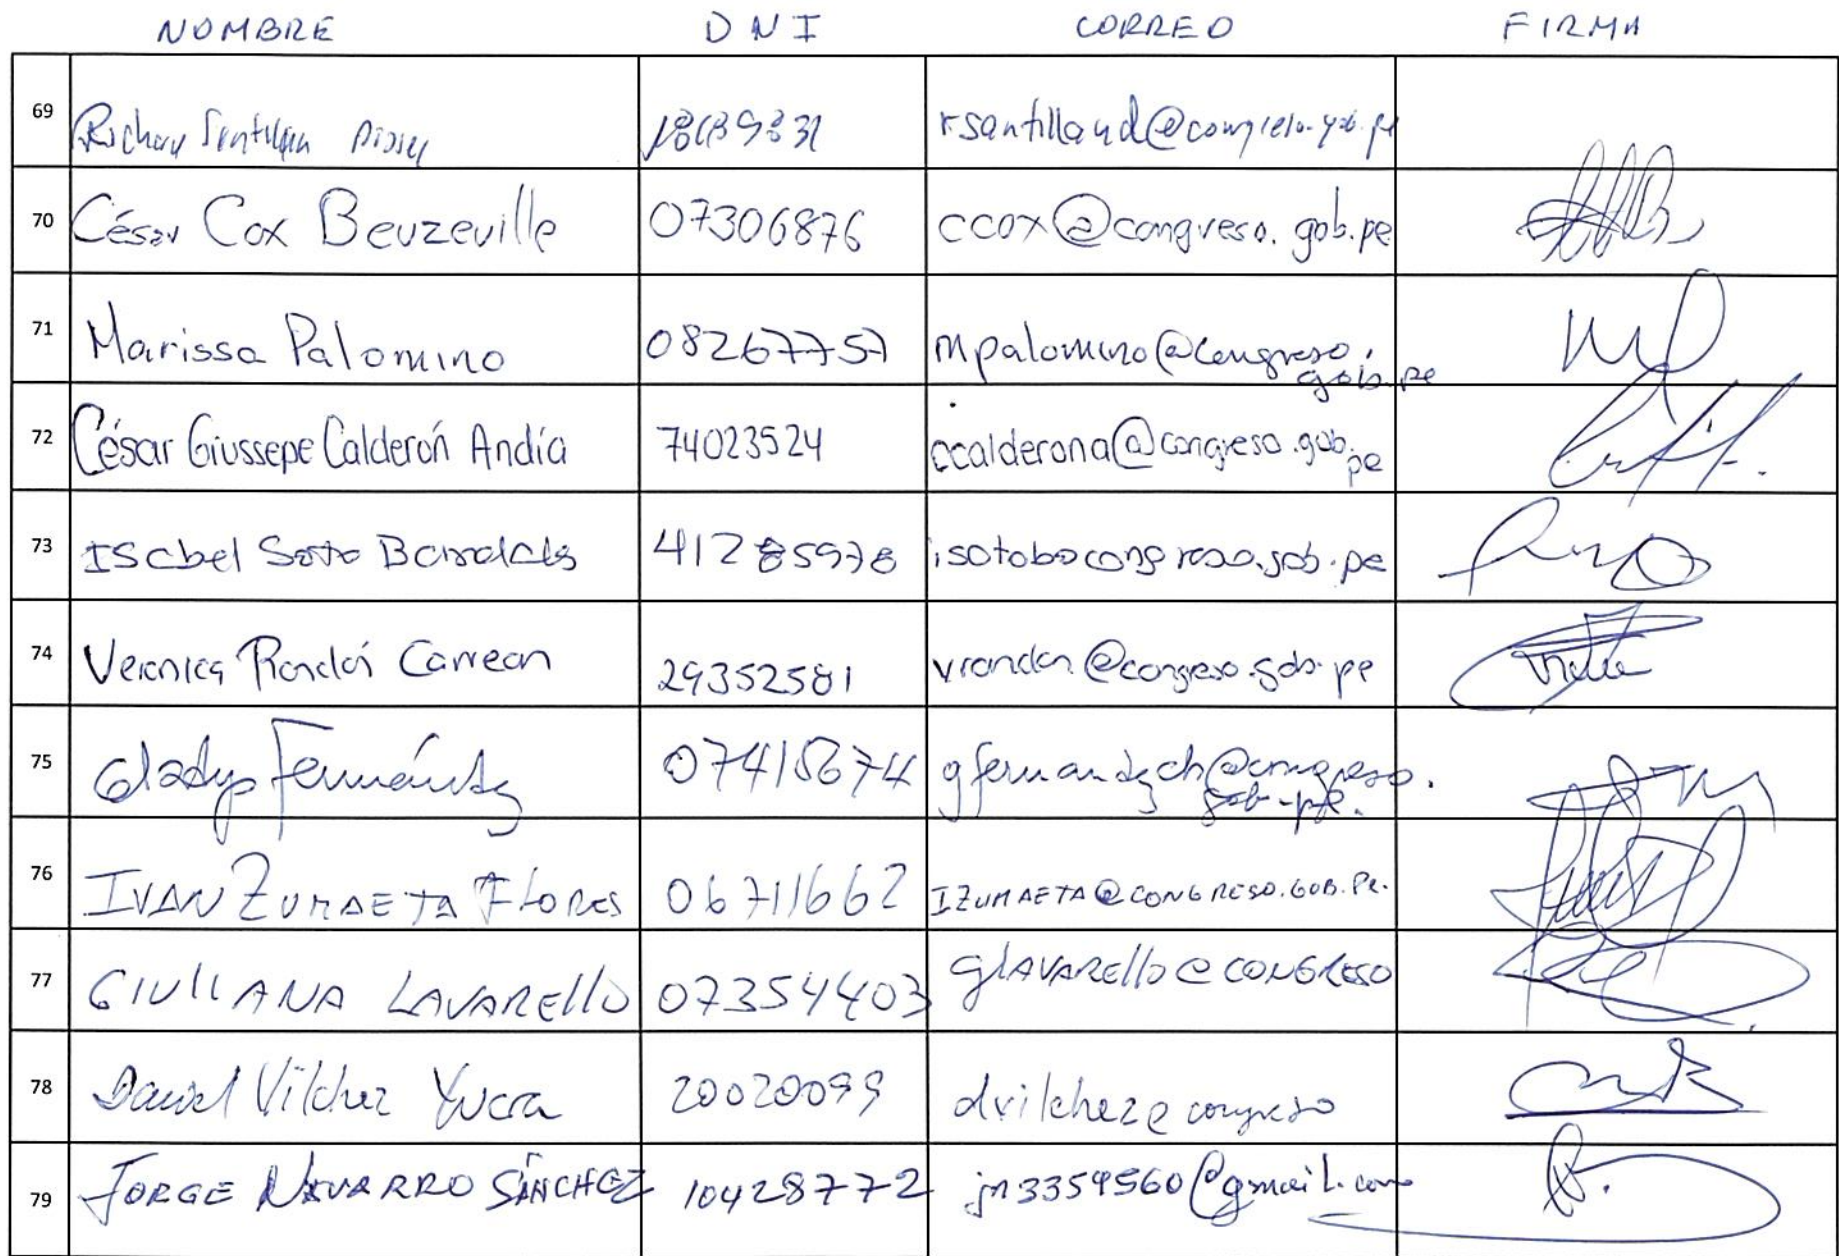 NOMBRE DNI CORREO FIRMA
69 Richar Santillan rsantilland@congreso.gob.pe
70 César Cox Beuzeville 07306876 ccox@congreso.gob.pe
71 Marissa Palomino 08267757 mpalomino@congreso.
gob.pe
72 César Giussepe Calderón Andía 74023524 ccalderona@congreso.gob.
pe
73 ISabel Soto 41285978 isotobocongreso.gob.pe
74 Veronica Rondón Carreon 29352581 vrondon@congreso.gob.pe
75 Gladys Fernández 07415674 gfernandezch@congreso.
gob.pe.
76 IVAN ZUMAETA FLORES 06711662 IZUMAETA@CONGRESO.GOB.PE.
77 GIULIANA LAVARELLO 07354403 GLAVARELLO@CONGRESO
78 Daniel Vilchez Yucra 20020099 dvilchez@congreso
79 JORGE NAVARRO SÁNCHEZ 10428772 jn3359560@gmail.com